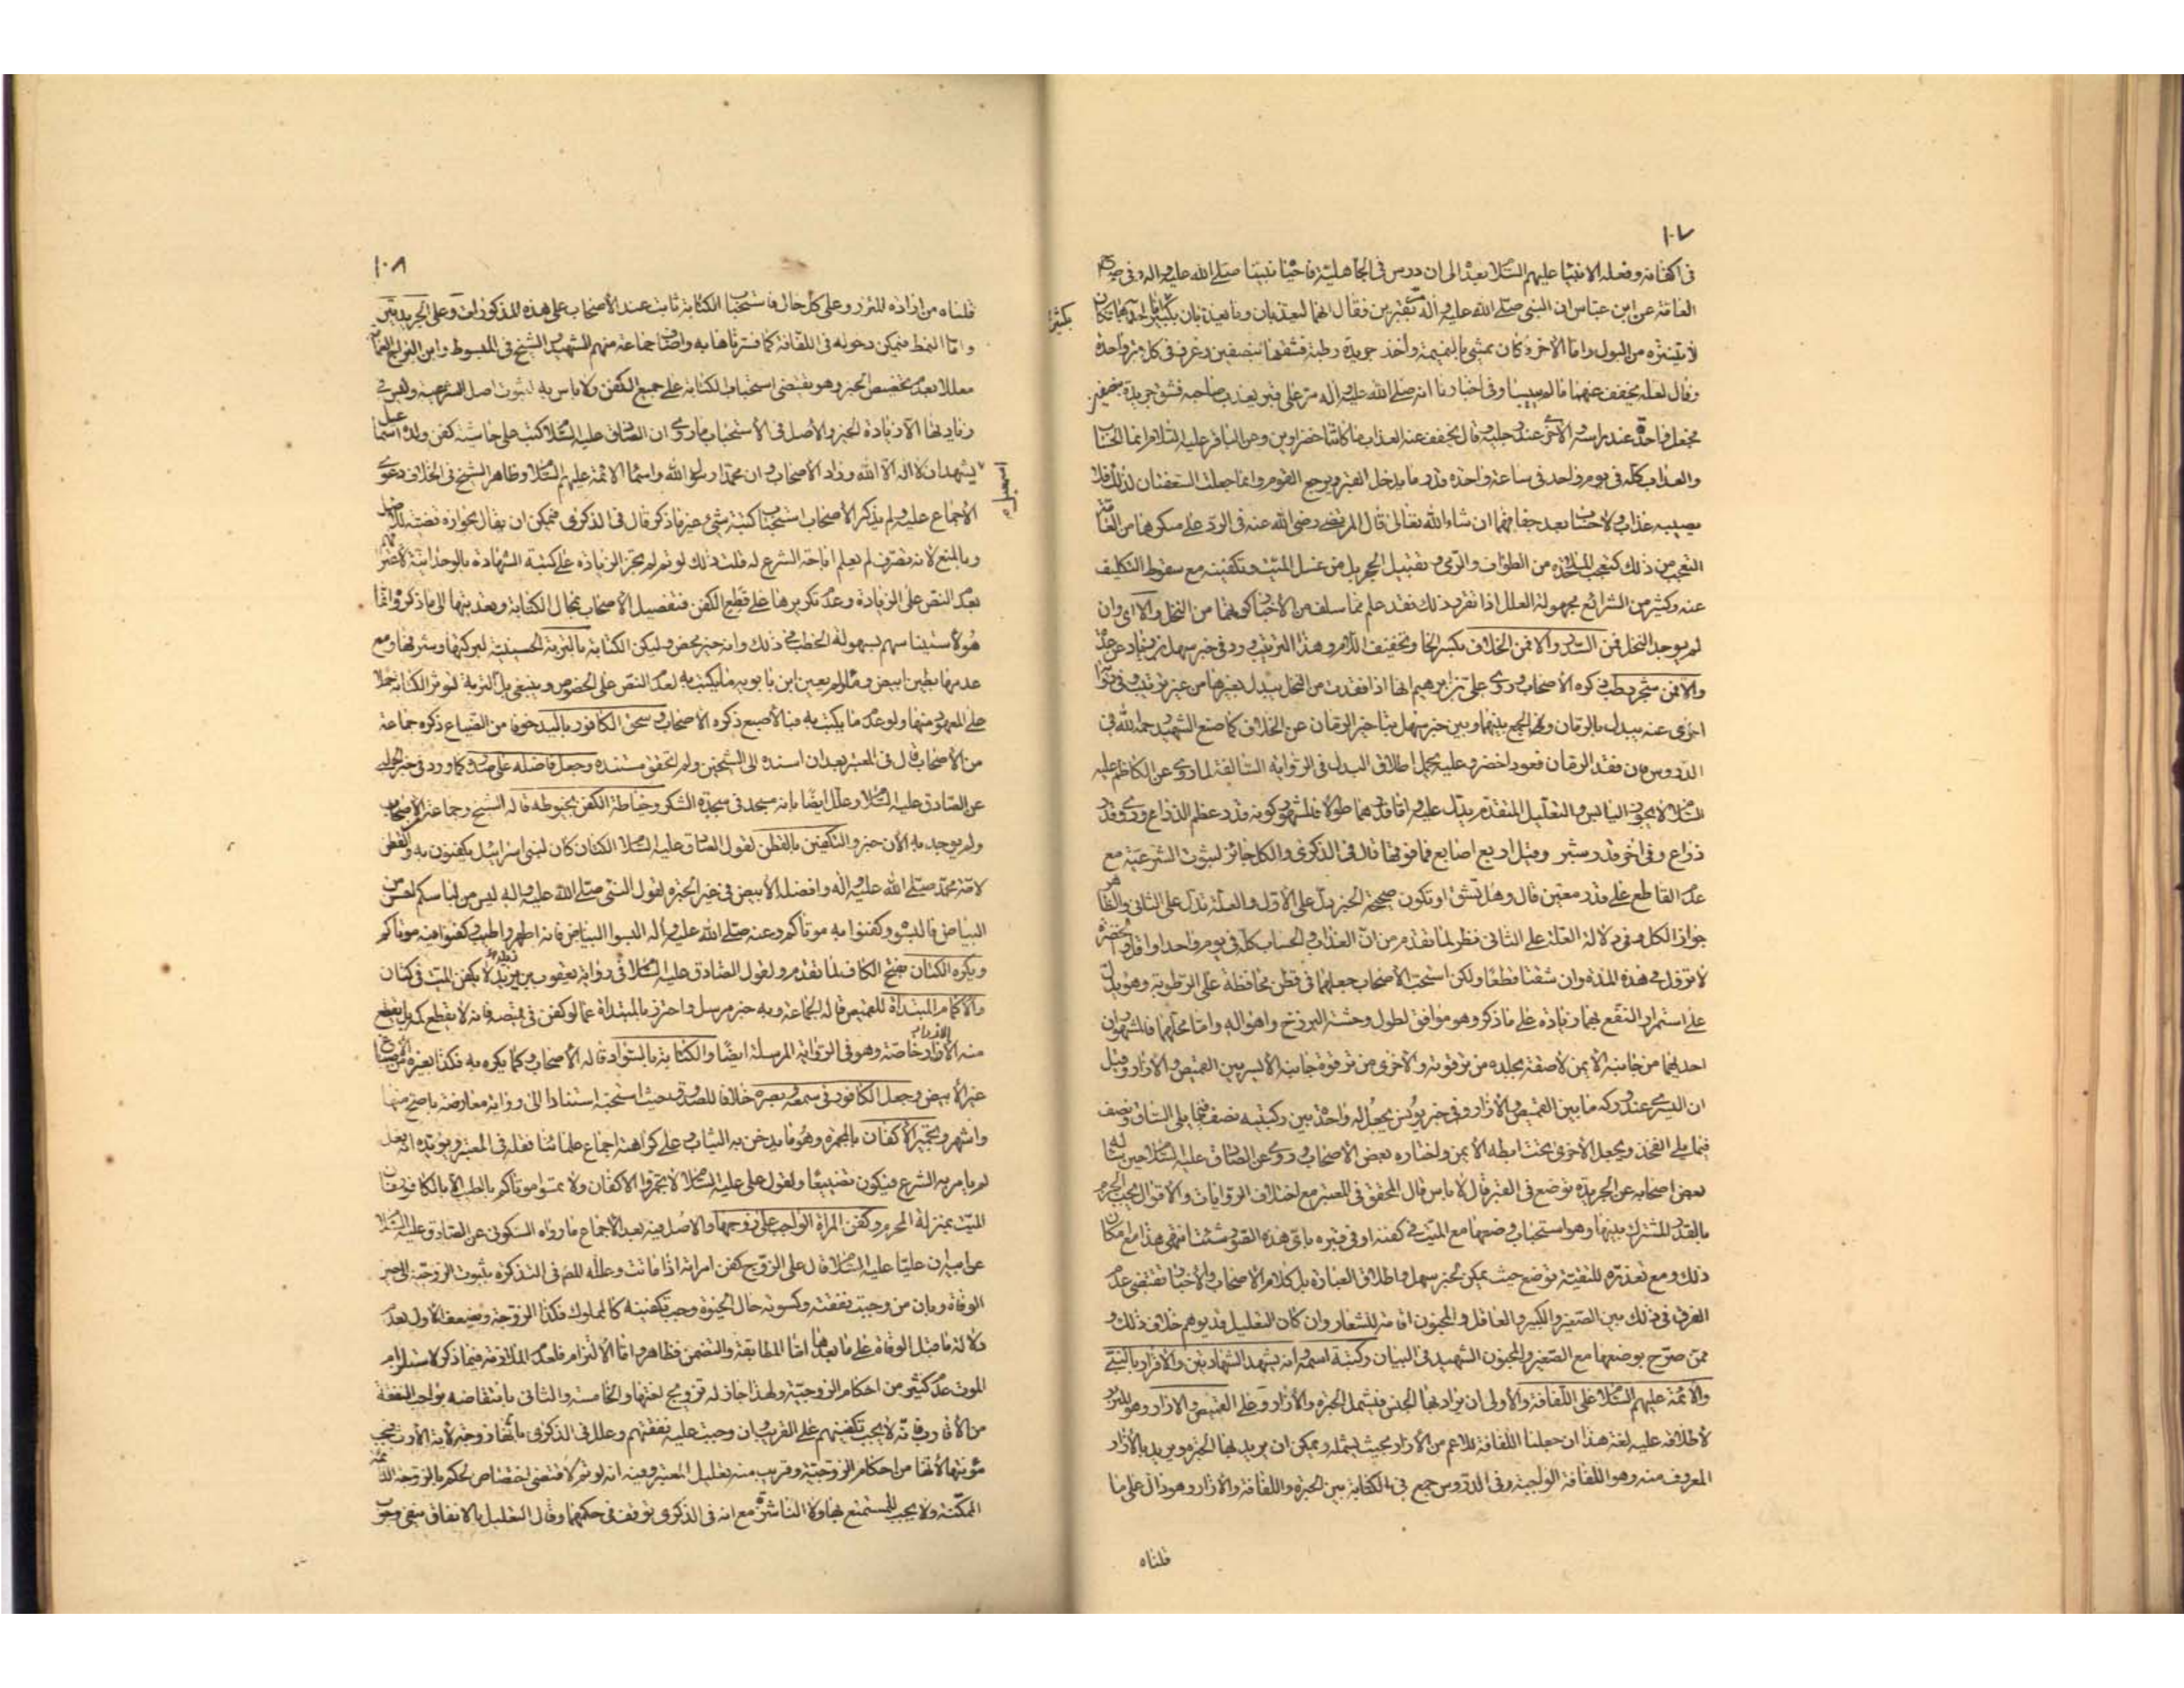 ١٠٧
في اكفانه وفعله الانبيا عليهم السلام بعده الى ان درس في الجاهلية فاحياه نبينا صلى الله عليه واله وفي
العامة عن ابن عباس ان النبي صلى الله عليه واله مر بقبرين فقال انهما ليعذبان وما يعذبان بكبير اما احدهما فكان
لا يتنزه من البول واما الاخر فكان يمشي بالنميمة واخذ جريدة رطبة فشقها بنصفين وغرز في كل قبر واحدة
وقال لعله يخفف عنهما ما لم ييبسا وفي اخبارنا انه صلى الله عليه واله مر على قبر يعذب صاحبه فشق جريدة بنصفين
فجعل واحدة عند راسه والاخرى عند رجليه وقال يخفف عنه العذاب ما كانتا خضراوين وعن الباقر عليه السلام انما الحساب
والعذاب كله في يوم واحد في ساعة واحدة قدر ما يدخل القبر ويرجع القوم وانما جعلت السعفتان لذلك فلا
يصيبه عذاب ولا حساب بعد جفافهما ان شاء الله تعالى قال المرتضى رضي الله عنه في الرد على منكرها من العامة
التعجب من ذلك كتعجب الملاحدة من الطواف والرمي وتقبيل الحجر بل من غسل الميت وتكفينه مع سقوط التكليف
عنه وكثير من الشرائع مجهولة العلل اذا تقرر ذلك فقد علم مما سلف من الاخبار كونهما من النخل والا اي وان
لم يوجد النخل فمن السدر والا فمن الخلاف بكسر الخاء وتخفيف اللام وهذا الترتيب ورد في خبر سهل بن زياد عن عدة
والا فمن شجر رطب ذكره الاصحاب وروى علي بن ابراهيم انها اذا فقدت من النخل يبدل بغيرها من غير ترتيب وفي رواية
اخرى عنه يبدل بالرمان وفي الجمع بينهما وبين خبر سهل بتاخير الرمان عن الخلاف كما صنع الشهيد رحمه الله في
الدروس فان فقد الرمان فعود اخضر وعليه يحمل اطلاق البدل في الرواية السالفة لما روى عن الكاظم عليه
السلام لا يجوز اليابس والتعليل المتقدم يدل عليه واما قدرهما طولا فالمشهور كونه قدر عظم الذراع وروى وقدر
ذراع وفي اخر قدر شبر وقيل اربع اصابع فما فوقها قال في الذكرى والكل جائز لثبوت الشرعية مع
عدم القاطع على قدر معين قال وهل تشق او تكون صحيحة الخبر يدل على الاول والعلة تدل على الثاني والظاهر
جواز الكل وفي دلالة العلة على الثاني نظر لما تقدم من ان العذاب والحساب كله في يوم واحد او اقل والخضرة
لا تزول في هذه المدة وان شقتا قطعا ولكن استحب الاصحاب جعلهما في قطن محافظة على الرطوبة وهو يدل
على استمرار النفع بهما زيادة على ما ذكر وهو موافق لطول وحشة البرزخ واهواله واما محلهما فالمشهور ان
احديهما من جانبه الايمن لاصقة بجلده من ترقوته والاخرى من ترقوة جانبه الايسر بين القميص والازار وقيل
ان اليسرى عند وركه ما بين القميص والازار وفي خبر يونس يجعل له واحدة بين ركبتيه نصف فيما يلي الساق ونصف
فيما يلي الفخذ ويجعل الاخرى تحت ابطه الايمن واختاره بعض الاصحاب وروى عن الصادق عليه السلام حين ساله
بعض اصحابه عن الجريدة توضع في القبر قال لا باس قال المحقق في المعتبر مع اختلاف الروايات والاقوال يجب الجزم
بالقدر المشترك بينها وهو استحباب وضعها مع الميت في كفنه او في قبره باي هذه الصور شئت انتهى هذا مع امكان
ذلك ومع تعذره للتقية توضع حيث يمكن لخبر سهل واطلاق العبارة بل كلام الاصحاب والاخبار تقتضي عدم
الفرق في ذلك بين الصغير والكبير والعاقل والمجنون اقامة للشعار وان كان التعليل قد يوهم خلاف ذلك و
ممن صرح بوضعها مع الصغير والمجنون الشهيد في البيان وكتبة اسمه وانه يشهد الشهادتين والاقرار بالنبي
والائمة عليهم السلام على اللفافة والاولى ان يراد بها الجنس فيشمل الحبرة والازار وعلى القميص والازار وهو المئزر
لاطلاقه عليه لغة هذا ان جعلنا اللفافة للاعم من الازار بحيث يشمله ويمكن ان يريد بها الحبرة ويريد بالازار
المعروف منه وهو اللفافة الواجبة وفي الدروس جمع في الكتابة بين الحبرة واللفافة والازار وهو دال على ما
قلناه
بكثير
١٠٨
قلناه من ارادة المئزر وعلى كل حال فاستحباب الكتابة ثابت عند الاصحاب على هذه المذكورات وعلى الجريدتين
واما النمط فيمكن دخوله في اللفافة كما فسرناها به واضاف جماعة منهم الشهيد والشيخ في المبسوط وابن البراج العمامة
معللا بعدم تخصيص الخبر وهو يقتضي استحباب الكتابة على جميع الكفن ولا باس به لثبوت اصل الشرعية وليس في
زيادتها الا زيادة الخير والاصل في الاستحباب ما روى ان الصادق عليه السلام كتب على حاشية كفن ولده اسمعيل
يشهد ان لا اله الا الله وزاد الاصحاب وان محمدا رسول الله واسماء الائمة عليهم السلام وظاهر الشيخ في الخلاف دعوى
الاجماع عليه ولم يذكر الاصحاب استحباب كتبة شيء غير ما ذكر قال في الذكرى فيمكن ان يقال بجوازه قضية للاصل
وبالمنع لانه تصرف لم يعلم اباحة الشرع له قلت ذلك لو تم لم تجز الزيادة على كتبة الشهادة بالوحدانية لا غير
بعدم النص على الزيادة وعدم تكريرها على قطع الكفن فتفصيل الاصحاب بحال الكتابة وتعديتها الى ما ذكروه انما
هو لاستيناسهم بسهولة الخطب في ذلك وانه خير محض وليكن الكتابة بالتربة الحسينية لبركتها وشرفها ومع
عدمها بطين ابيض وماء ولم يعين ابن بابويه ما يكتب به لعدم النص على الخصوص وينبغي بل التربة لتوثر الكتابة حملا
على المعهود منها ولو عدم ما يكتب به فبالاصبع ذكره الاصحاب وسحق الكافور باليد خوفا من الضياع ذكره جماعة
من الاصحاب قال في المعتبر بعد ان اسنده الى الشيخين ولم اتحقق مستنده وجعل فاضله على صدره كما ورد في خبر الحلبي
عن الصادق عليه السلام وعلل ايضا بانه مسجد في سجدة الشكر وخياطة الكفن بخيوطه قاله الشيخ وجماعة الاصحاب
ولم يوجد به الان خبر والتكفين بالقطن لقول الصادق عليه السلام الكتان كان لبني اسرائيل يكفنون به والقطن
لامة محمد صلى الله عليه واله وافضله الابيض في غير الحبرة لقول النبي صلى الله عليه واله ليس من لباسكم احسن من
البياض فالبسوه وكفنوا به موتاكم وعنه صلى الله عليه واله البسوا البياض فانه اطهر واطيب وكفنوا فيه موتاكم
ويكره الكتان بفتح الكاف لما تقدم ولقول الصادق عليه السلام في رواية يعقوب بن يزيد لا يكفن الميت في كتان
والاكمام المبتداة للقميص قاله الجماعة وبه خبر مرسل واحترز بالمبتداة عما لو كفن في قميصه فانه لا يقطع كمه بل يقطع
منه الازرار خاصة وهو في الرواية المرسلة ايضا والكتابة بالسواد قاله الاصحاب وكما يكره به فكذا بغيره من الاصباغ
غير الابيض وجعل الكافور في سمعه وبصره خلافا للصدوق حيث استحبه استنادا الى رواية معارضة باصح منها
واشهر وتجمير الاكفان بالمجمرة وهو ما يدخن به الثياب وعلى كراهته اجماع علمائنا نقله في المعتبر ويؤيده انه فعل
لم يامر به الشرع فيكون تضييعا ولقول علي عليه السلام لا تجمروا الاكفان ولا تمسوا موتاكم بالطيب الا بالكافور فان
الميت بمنزلة المحرم وكفن المراة الواجب على زوجها والاصل فيه بعد الاجماع ما رواه السكوني عن الصادق عليه السلام
عن ابيه ان عليا عليه السلام قال على الزوج كفن امراته اذا ماتت وعلله المصر في التذكرة بثبوت الزوجية الى حين
الوفاة وبان من وجبت نفقته وكسوته حال الحيوة وجب تكفينه كالمملوك فكذا الزوجة ويضعف الاول بعدم
دلالة ما قبل الوفاة على ما بعدها اما المطابقة والتضمن فظاهر واما الالتزام فلعدم الملازمة فيما ذكر لاستلزام
الموت عدم كثير من احكام الزوجية ولهذا جاز له تزويج اختها والخامسة والثاني بانتقاضه بواجب النفقة
من الاقارب فانه لا يجب تكفينهم على القريب وان وجبت عليه نفقتهم وعلل في الذكرى بانها زوجة لاية الارث فتجب
مؤنتها لانها من احكام الزوجية وقريب منه تعليل المعتبر وفيه انه لو تم لاقتضى اختصاص الحكم بالزوجة الدائمة
الممكنة ولا يجب للمستمتع بها ولا الناشزة مع انه في الذكرى توقف في حكمهما وقال التعليل بالانفاق ينفي وجوب
اسمعيل